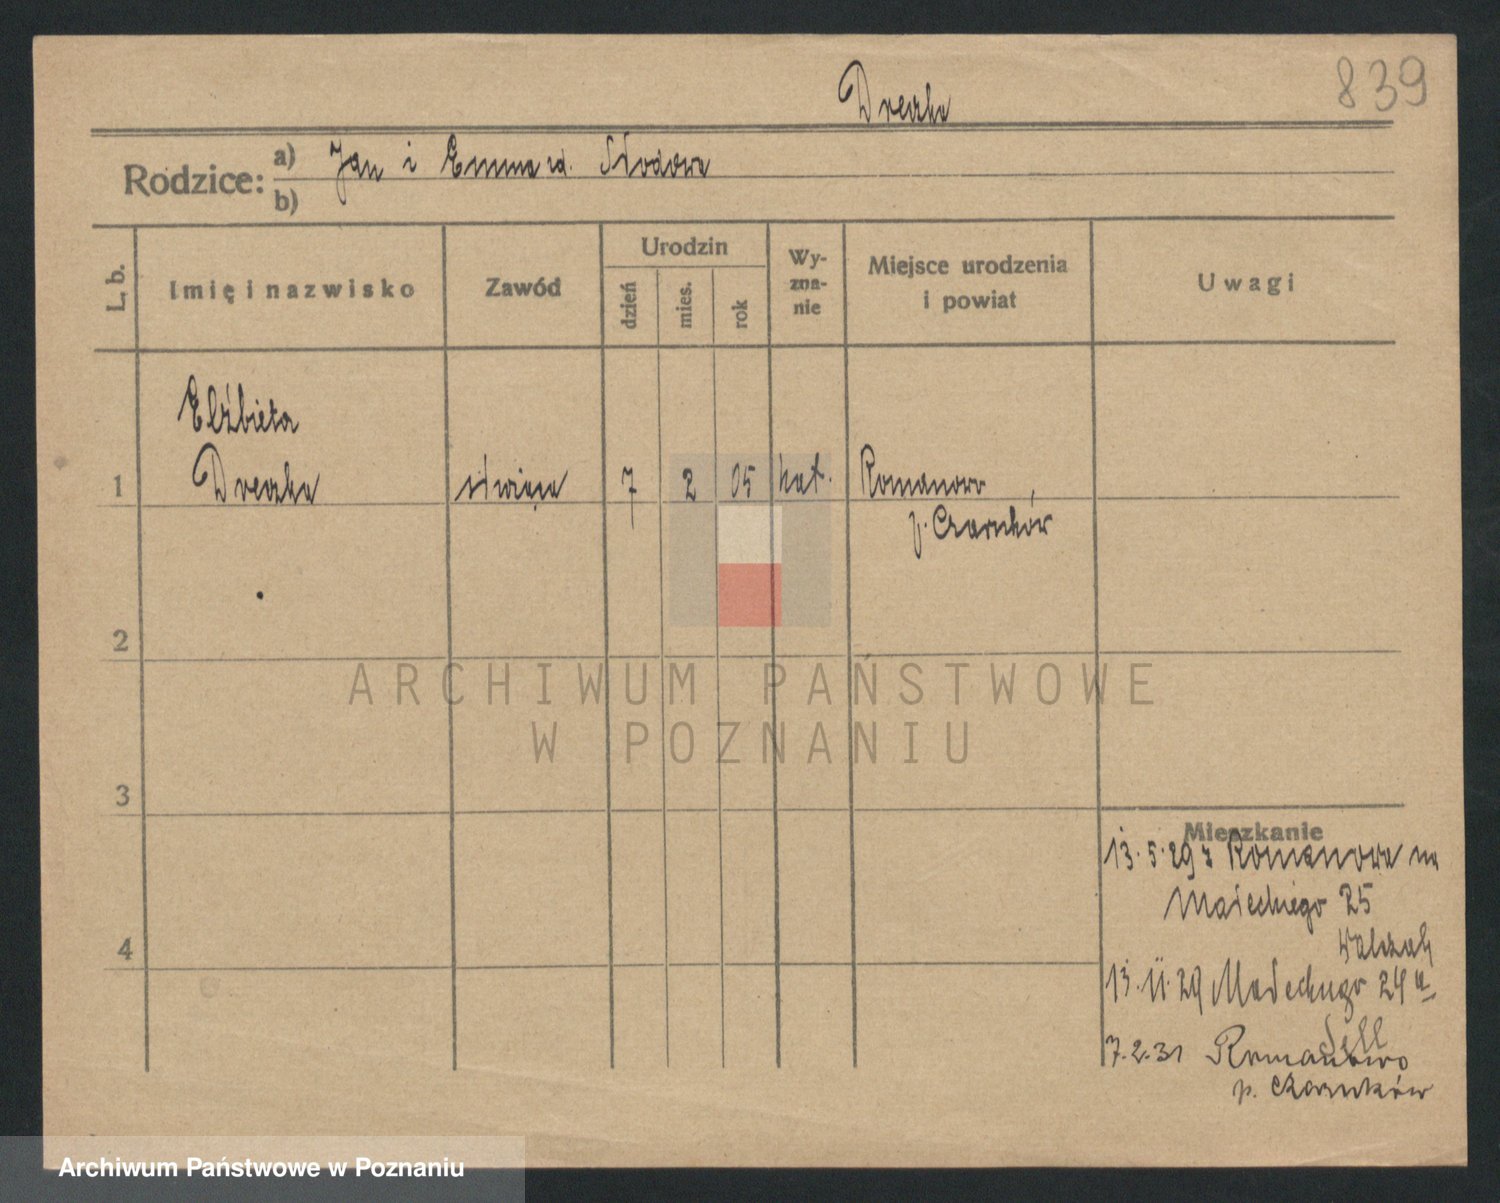 839
Drezka
Rodzice: a) Jan i Emma zd. Słodowa
b)
L. b. Imię i nazwisko Zawód Urodzin dzień mies. rok Wy-zna-nie Miejsce urodzenia i powiat Uwagi
Elżbieta
1 Drezka służąca 7 2 05 kat. Romanowo
p. Czarnków
2
ARCHIWUM PAŃSTWOWE
W POZNANIU
3
Mieszkanie
13.5.29 z Romanowa na
Małeckiego 25
Walczak
4
13.11.29 Małeckiego 24 a
Sell
7.2.31 Romanowo
p. Czarnków
Archiwum Państwowe w Poznaniu